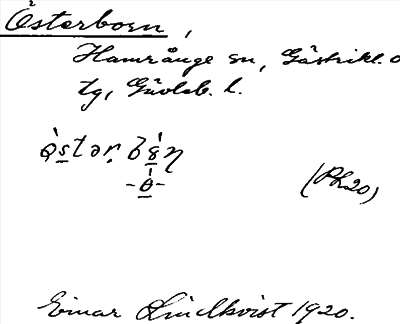 Österborn,
Hamrånge sn, Gästrikl. o
tg, Gävleb. l.
ò̀stər bs̀n
-ò-
(Ph20)
Einar Lindkvist 1920.